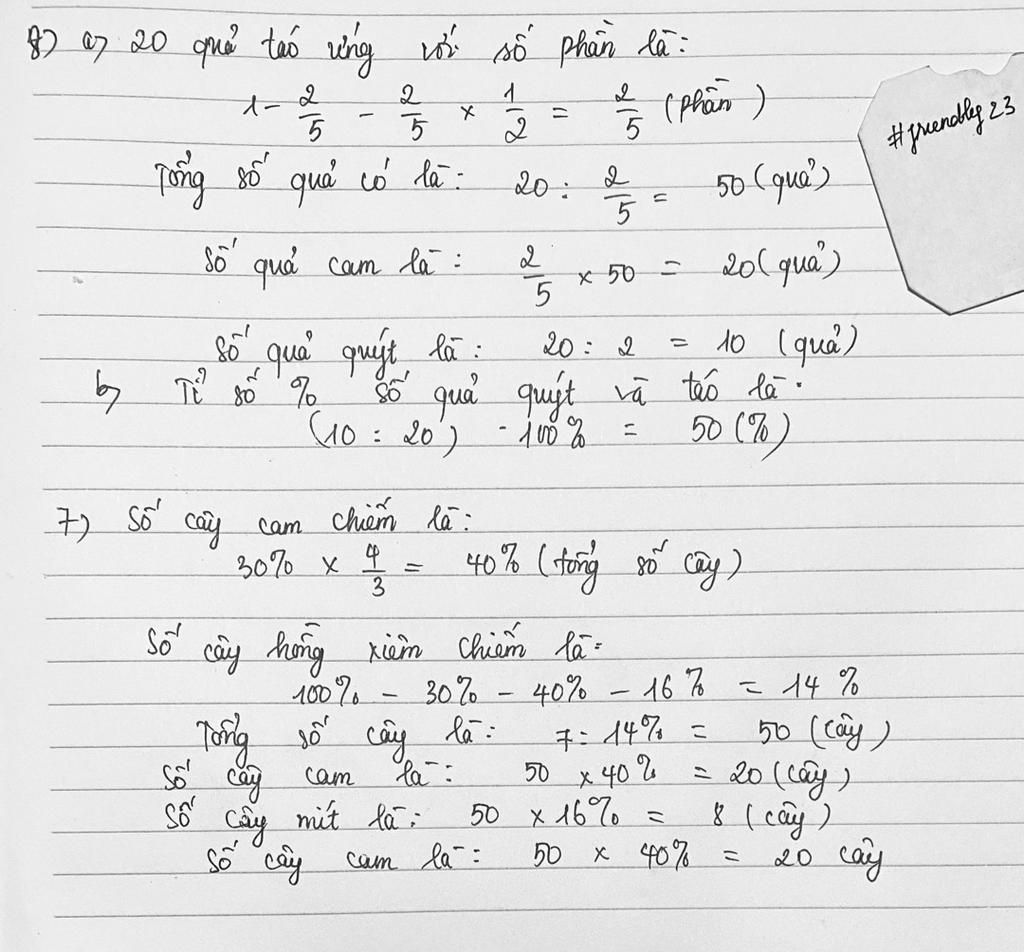 8) a) 20 quả táo ứng với số phần là:
1 - 2/5 - 2/5 × 1/2 = 2/5 (phần)
#friendbly23
Tổng số quả có là: 20 : 2/5 = 50 (quả)
Số quả cam là: 2/5 × 50 = 20 (quả)
Số quả quýt là: 20 : 2 = 10 (quả)
b) Tỉ số % số quả quýt và táo là.
(10 : 20) . 100% = 50 (%)
7) Số cây cam chiếm là:
30% × 4/3 = 40% (tổng số cây)
Số cây hồng xiêm chiếm là:
100% - 30% - 40% - 16% = 14%
Tổng số cây là: 7 : 14% = 50 (cây)
Số cây cam là: 50 × 40% = 20 (cây)
Số cây mít là: 50 × 16% = 8 (cây)
Số cây cam là: 50 × 40% = 20 cây